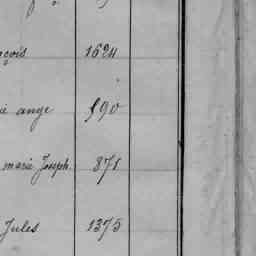 çois 1624
ie ange 590
marie Joseph. 871
Jules 1375